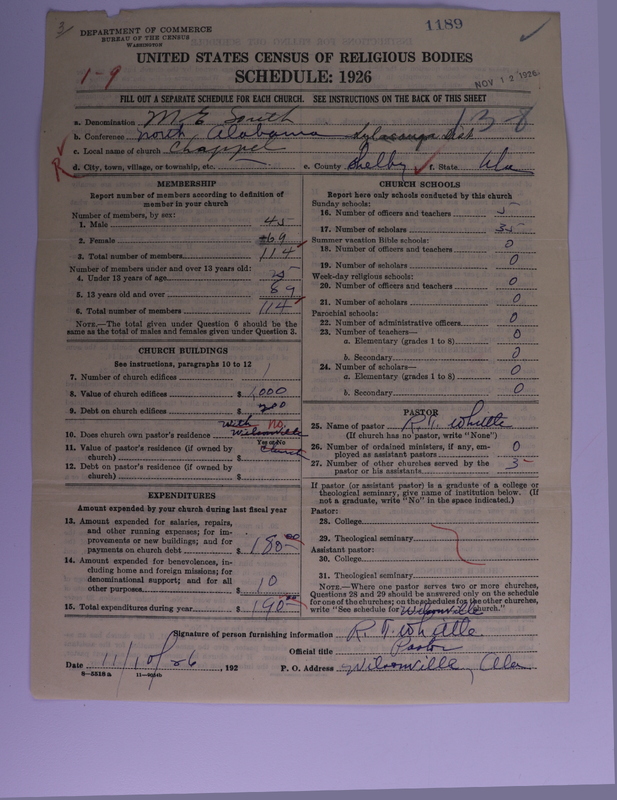 3
DEPARTMENT OF COMMERCE
BUREAU OF THE CENSUS
WASHINGTON
1189
UNITED STATES CENSUS OF RELIGIOUS BODIES
1-9
SCHEDULE: 1926
NOV 12 1926
FILL OUT A SEPARATE SCHEDULE FOR EACH CHURCH. SEE INSTRUCTIONS ON THE BACK OF THIS SHEET
a. Denomination M. E. South
138
b. Conference North Alabama Sylacauga Dist
c. Local name of church Chappel
R
d. City, town, village, or township, etc. e. County Shelby f. State Ala
MEMBERSHIP
Report number of members according to definition of member in your church
Number of members, by sex:
1. Male 45
2. Female 69
3. Total number of members 114
Number of members under and over 13 years old:
4. Under 13 years of age 25
5. 13 years old and over 89
6. Total number of members 114
NOTE.—The total given under Question 6 should be the
same as the total of males and females given under Question 3.
CHURCH BUILDINGS
See instructions, paragraphs 10 to 12
7. Number of church edifices 1
8. Value of church edifices $ 1,000
9. Debt on church edifices $ 200
With no.
10. Does church own pastor's residence Wilsonville
Yes or No
11. Value of pastor's residence (if owned by
church) $ Church
12. Debt on pastor's residence (if owned by
church) $
EXPENDITURES
Amount expended by your church during last fiscal year
13. Amount expended for salaries, repairs,
and other running expenses; for im-
provements or new buildings; and for
payments on church debt $ 180.00
14. Amount expended for benevolences, in-
cluding home and foreign missions; for
denominational support; and for all
other purposes $ 10
15. Total expenditures during year $ 190.00
CHURCH SCHOOLS
Report here only schools conducted by this church
Sunday schools:
16. Number of officers and teachers 5
17. Number of scholars 35
Summer vacation Bible schools:
18. Number of officers and teachers 0
19. Number of scholars 0
Week-day religious schools:
20. Number of officers and teachers 0
21. Number of scholars 0
Parochial schools:
22. Number of administrative officers 0
23. Number of teachers—
a. Elementary (grades 1 to 8) 0
b. Secondary 0
24. Number of scholars—
a. Elementary (grades 1 to 8) 0
b. Secondary 0
PASTOR
25. Name of pastor R. T. Whittle
(If church has no pastor, write "None")
26. Number of ordained ministers, if any, em-
ployed as assistant pastors 0
27. Number of other churches served by the
pastor or his assistants 3
If pastor (or assistant pastor) is a graduate of a college or
theological seminary, give name of institution below. (If
not a graduate, write "No" in the space indicated.)
Pastor:
28. College
29. Theological seminary
Assistant pastor:
30. College
31. Theological seminary
NOTE.—Where one pastor serves two or more churches,
Questions 28 and 29 should be answered only on the schedule
for one of the churches; on the schedules for the other churches,
write "See schedule for Wilsonville church."
Signature of person furnishing information R. T. Whittle
Official title Pastor
Date 11/10/26, 192 P. O. Address Wilsonville, Ala